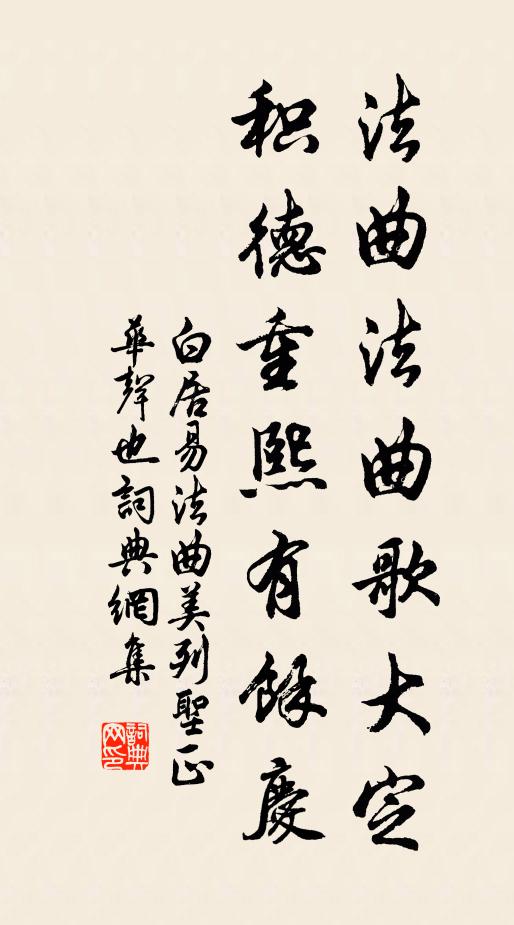 法曲法曲歌大定
积德重熙有餘慶
白居易法曲美列聖正
華聲也詞典網集
詞典
网印